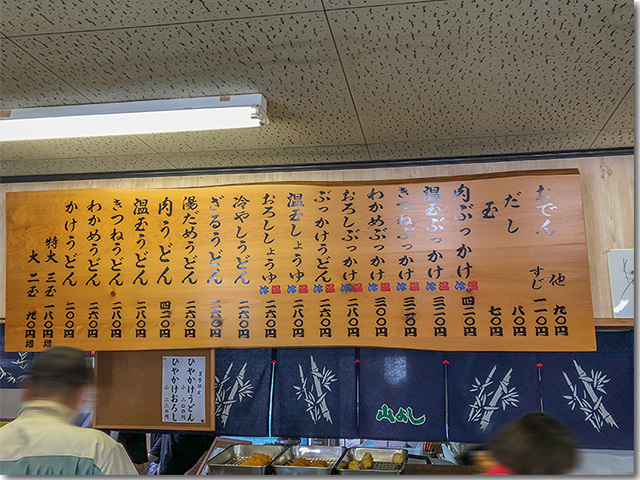 おでん 他 九〇円
すじ 一一〇円
だし 八〇円
玉 七〇円
肉ぶっかけ 冷 温 四二〇円
温玉ぶっかけ 冷 温 三二〇円
きつねぶっかけ 冷 温
わかめぶっかけ 冷 温 三〇〇円
おろしぶっかけ 冷 温 二八〇円
ぶっかけうどん 冷 温 二六〇円
温玉しょうゆ 冷 温 二八〇円
おろししょうゆ 冷 温 二六〇円
冷やしうどん 二六〇円
ざるうどん 二六〇円
湯だめうどん 二六〇円
肉うどん 四二〇円
温玉うどん 二八〇円
きつねうどん 二八〇円
わかめうどん 二六〇円
かけうどん 二〇〇円
特大 三玉 一八〇円増
大 二玉 九〇円増
夏季限定
ひやかけうどん
ひやかけおろし
山よし